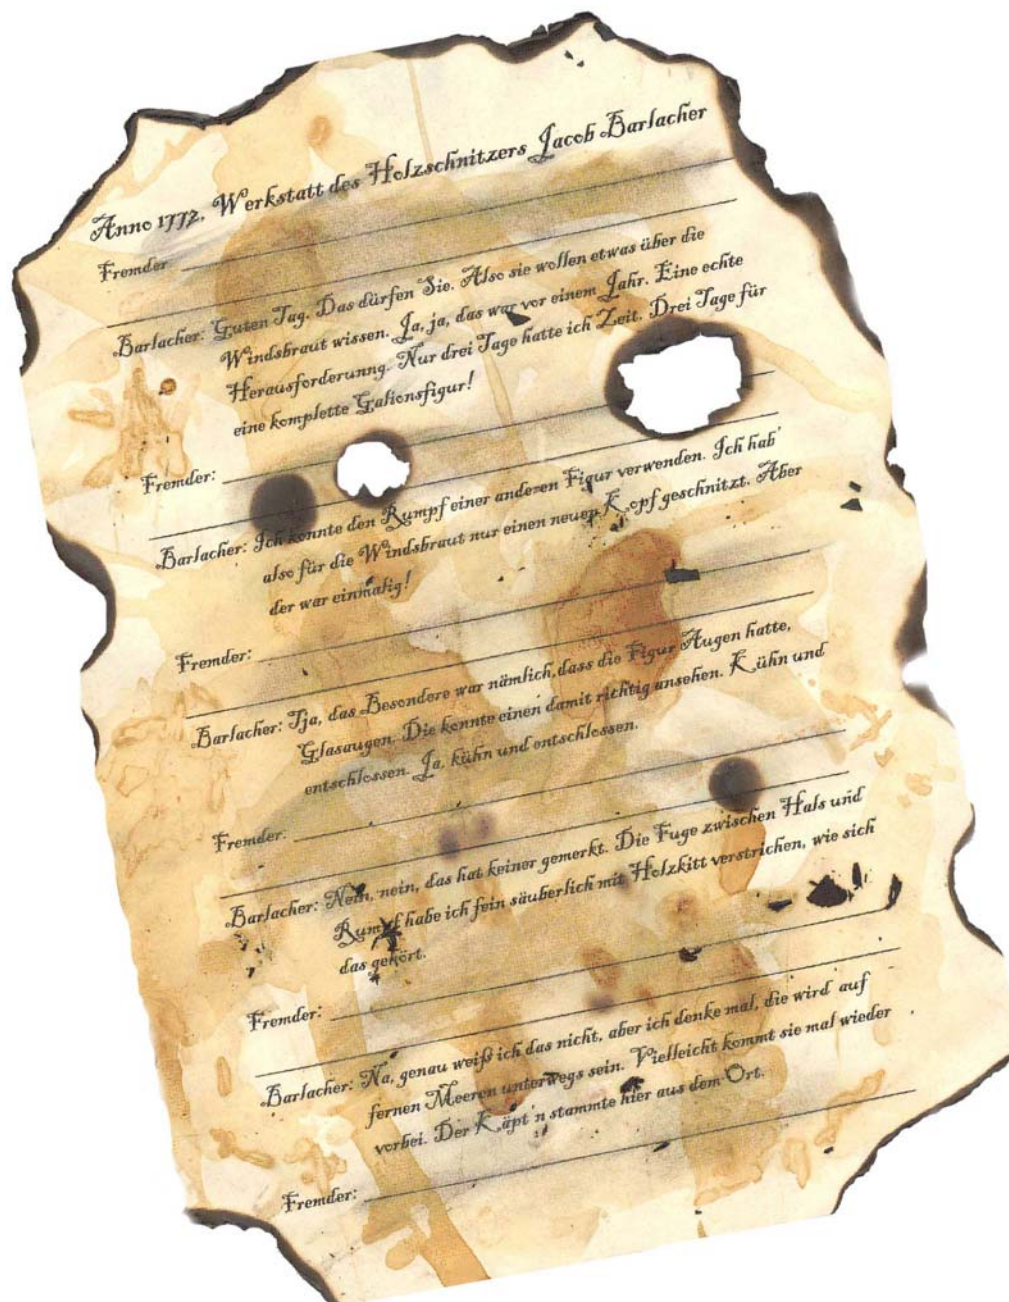 Anno 1772, Werkstatt des Holzschnitzers Jacob Barlacher
Fremder:
Barlacher: Guten Tag. Das dürfen Sie. Also sie wollen etwas über die
Windsbraut wissen. Ja, ja, das war vor einem Jahr. Eine echte
Herausforderunng. Nur drei Tage hatte ich Zeit. Drei Tage für
eine komplette Galionsfigur!
Fremder:
Barlacher: Ich konnte den Rumpf einer anderen Figur verwenden. Ich hab'
also für die Windsbraut nur einen neuen Kopf geschnitzt. Aber
der war einmalig!
Fremder:
Barlacher: Tja, das Besondere war nämlich, dass die Figur Augen hatte,
Glasaugen. Die konnte einen damit richtig ansehen. Kühn und
entschlossen. Ja, kühn und entschlossen.
Fremder:
Barlacher: Nein, nein, das hat keiner gemerkt. Die Fuge zwischen Hals und
Rumpf habe ich fein säuberlich mit Holzkitt verstrichen, wie sich
das gehört.
Fremder:
Barlacher: Na, genau weiß ich das nicht, aber ich denke mal, die wird auf
fernen Meeren unterwegs sein. Vielleicht kommt sie mal wieder
vorbei. Der Käpt'n stammte hier aus dem Ort.
Fremder: